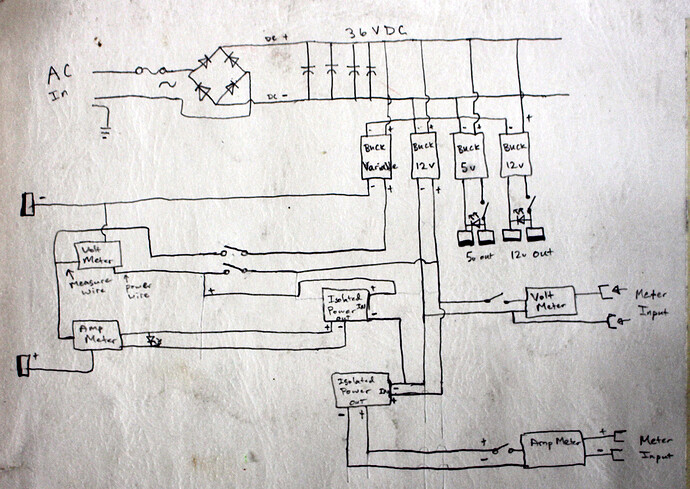 DC + 36 VDC
AC
In
~
DC -
- + - + - + - +
Buck
Variable
Buck
12v
Buck
5v
Buck
12v
- + - +
-
5v out
12v out
Volt
Meter
Measure
wire
Power
wire
+
Isolated
Power
out
In
+
-
+ -
Volt
Meter
Meter
Input
Amp
Meter
+
Isolated
Power
out
In
-
+
- +
+
-
Amp Meter
+
-
Meter
Input